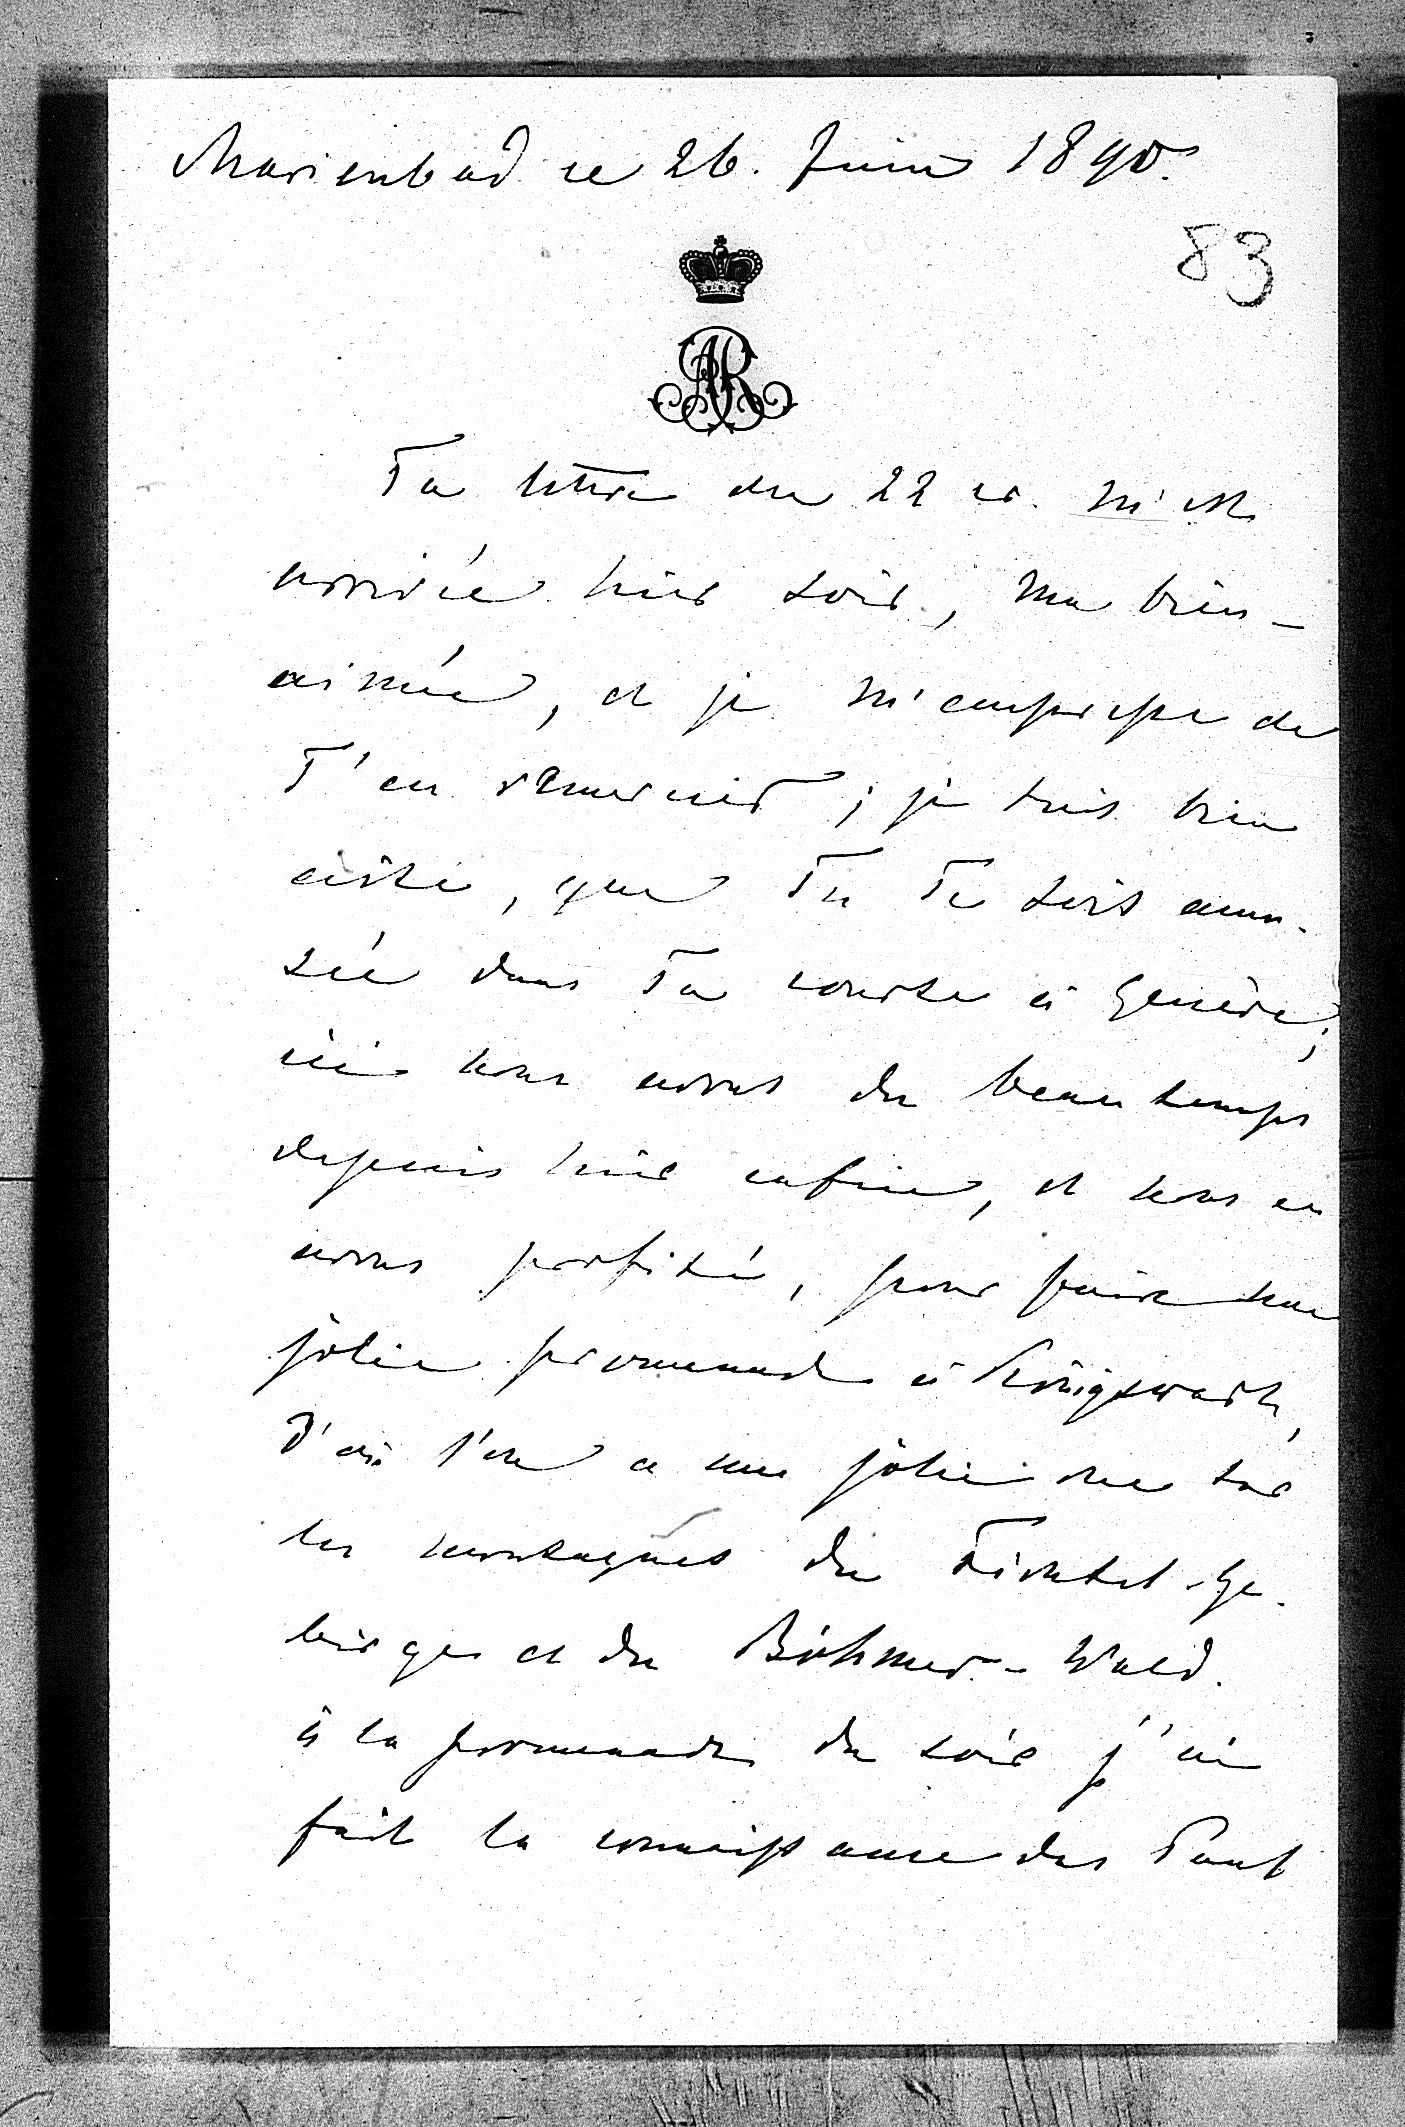 Marienbad ce 26. Juin 1890.
83
AR
Ta lettre du 22 cr. m'est
arrivée hier soir, ma bien-
aimée, et je m'empresse de
T'en remercier; je suis bien
aise, que Tu Te sois amu-
sée dans Ta course à Genève;
ici nous avons du beau temps
depuis hier enfin, et nous en
avons profité, pour faire une
jolie promenade à Königswarth,
d'où l'on a une jolie vue sur
les montagnes du Fichtel-Ge-
birge et du Böhmer-Wald.
à la promenade du soir j'ai
fait la connaissance des Paul